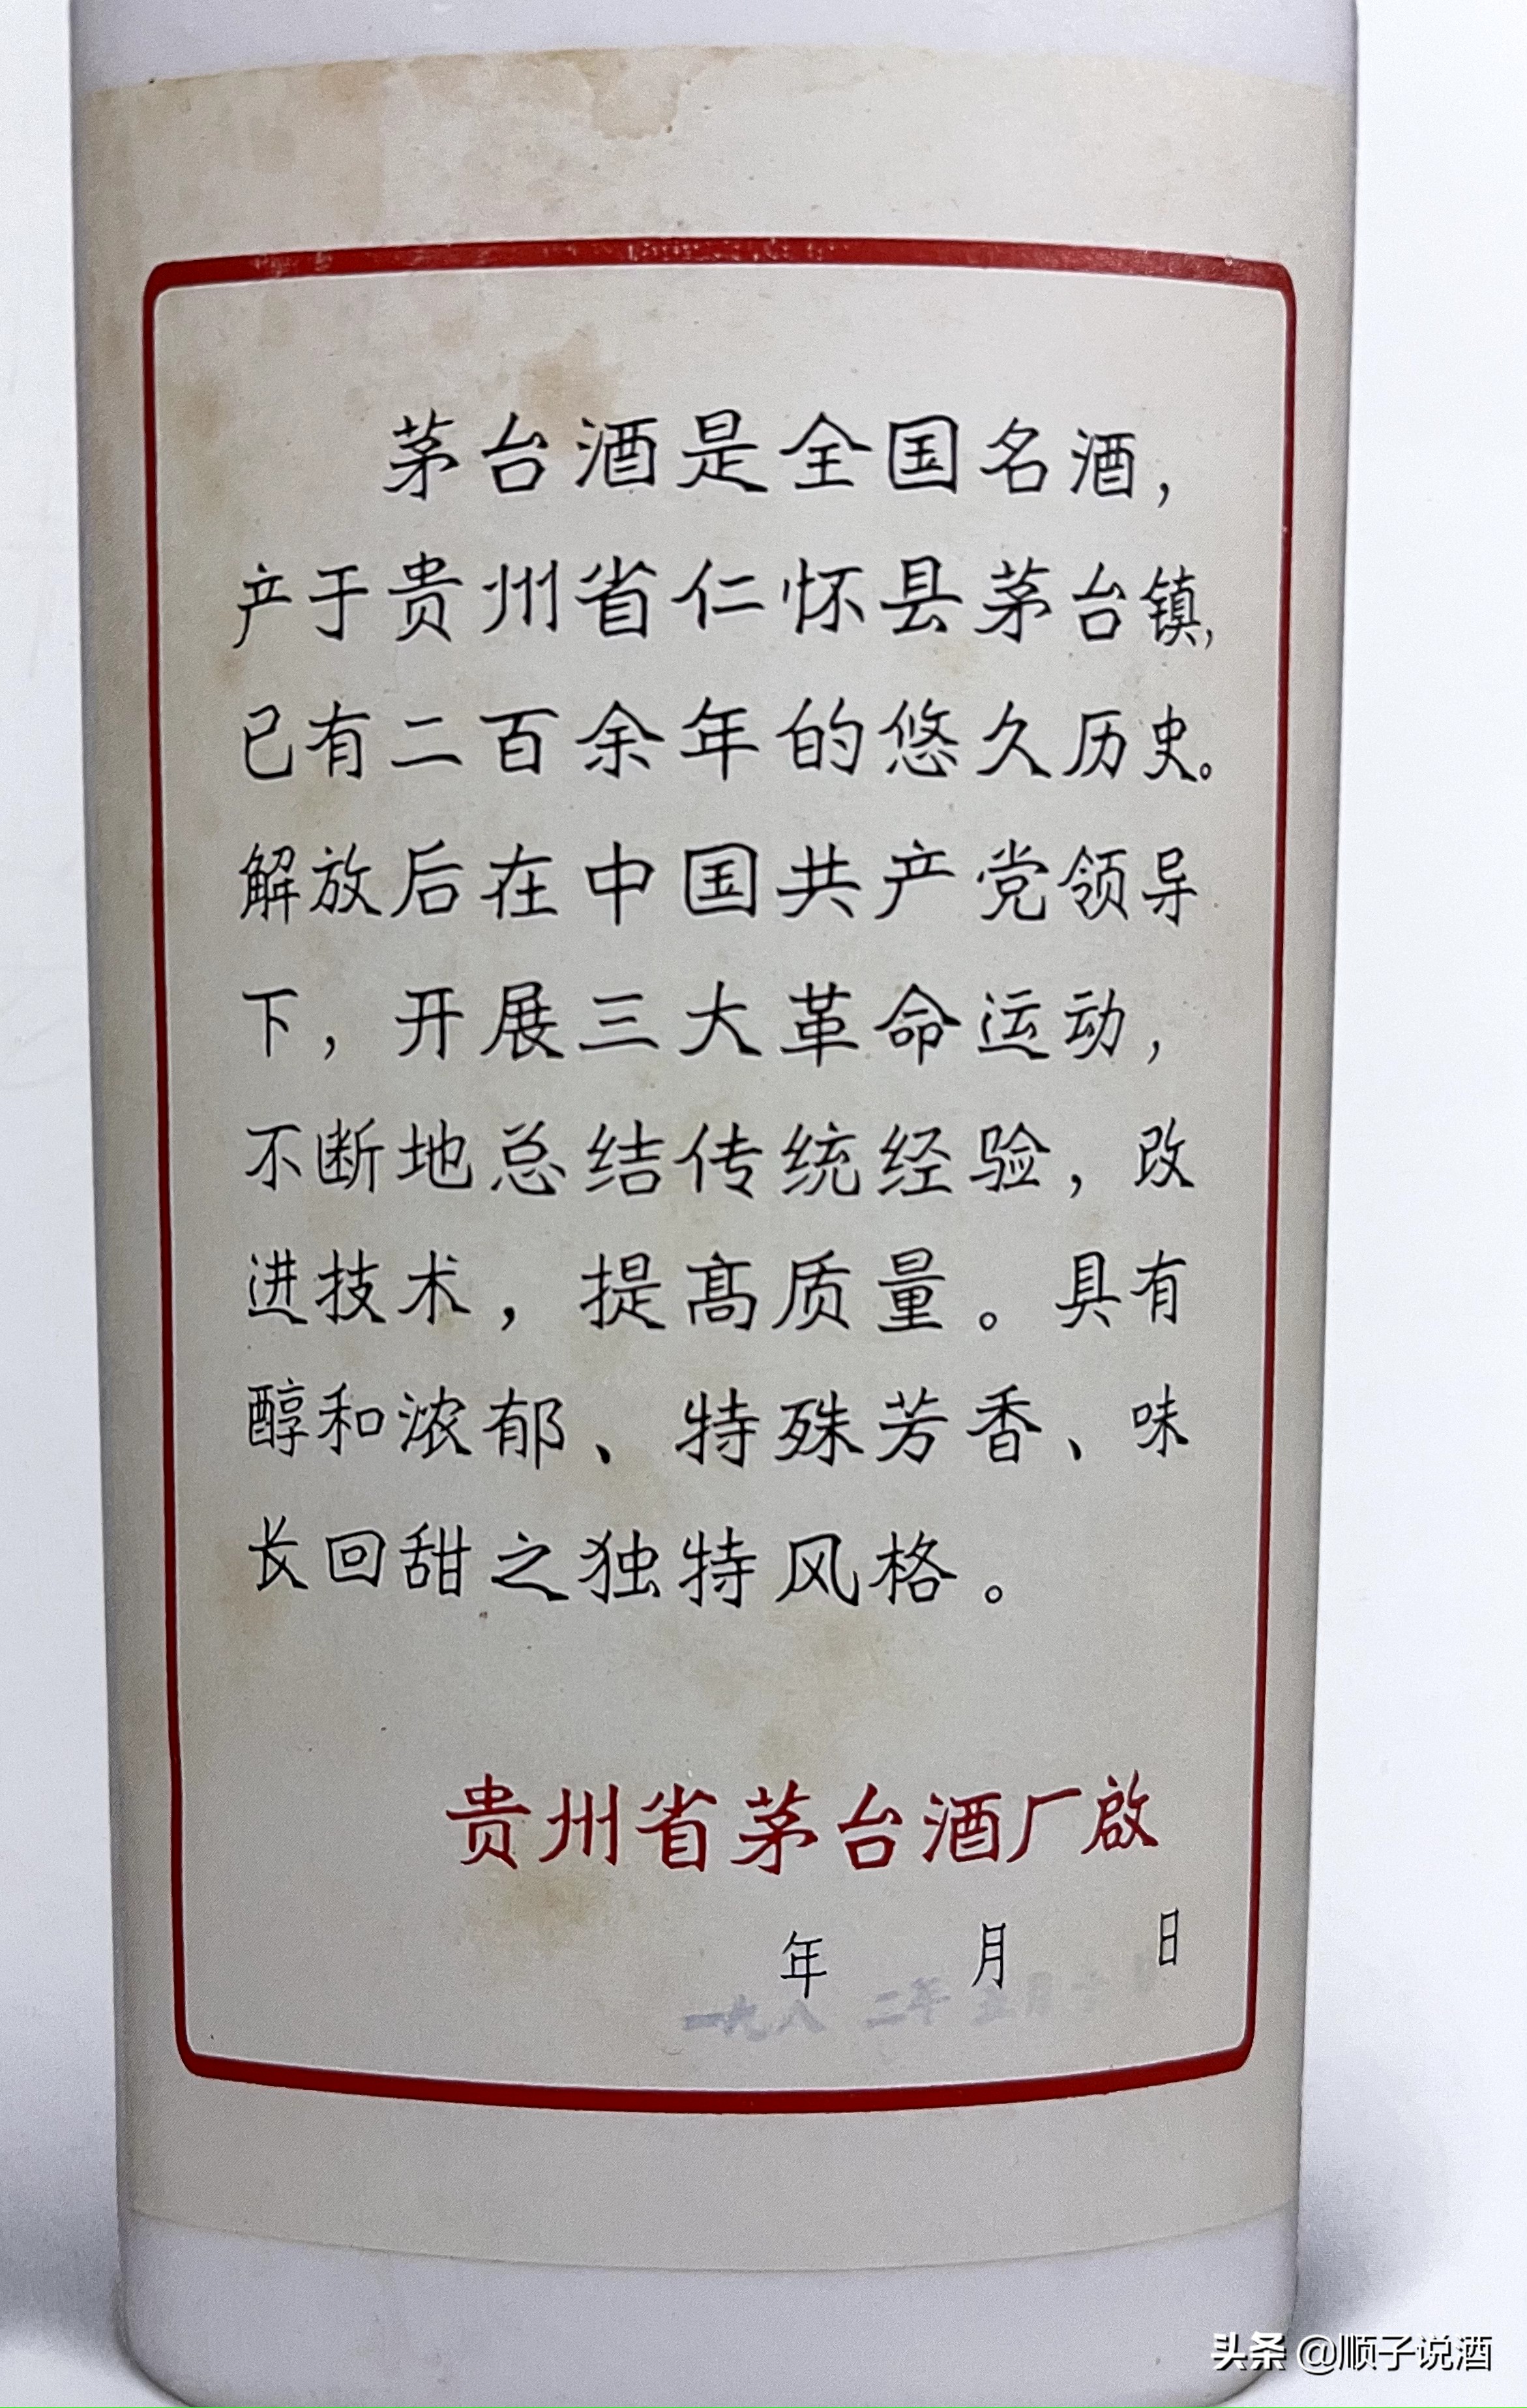 茅台酒是全国名酒，
产于贵州省仁怀县茅台镇，
已有二百余年的悠久历史。
解放后在中国共产党领导
下，开展三大革命运动，
不断地总结传统经验，改
进技术，提高质量。具有
醇和浓郁、特殊芳香、味
长回甜之独特风格。
贵州省茅台酒厂啟
年 月 日
一九八二年五月
头条 @顺子说酒